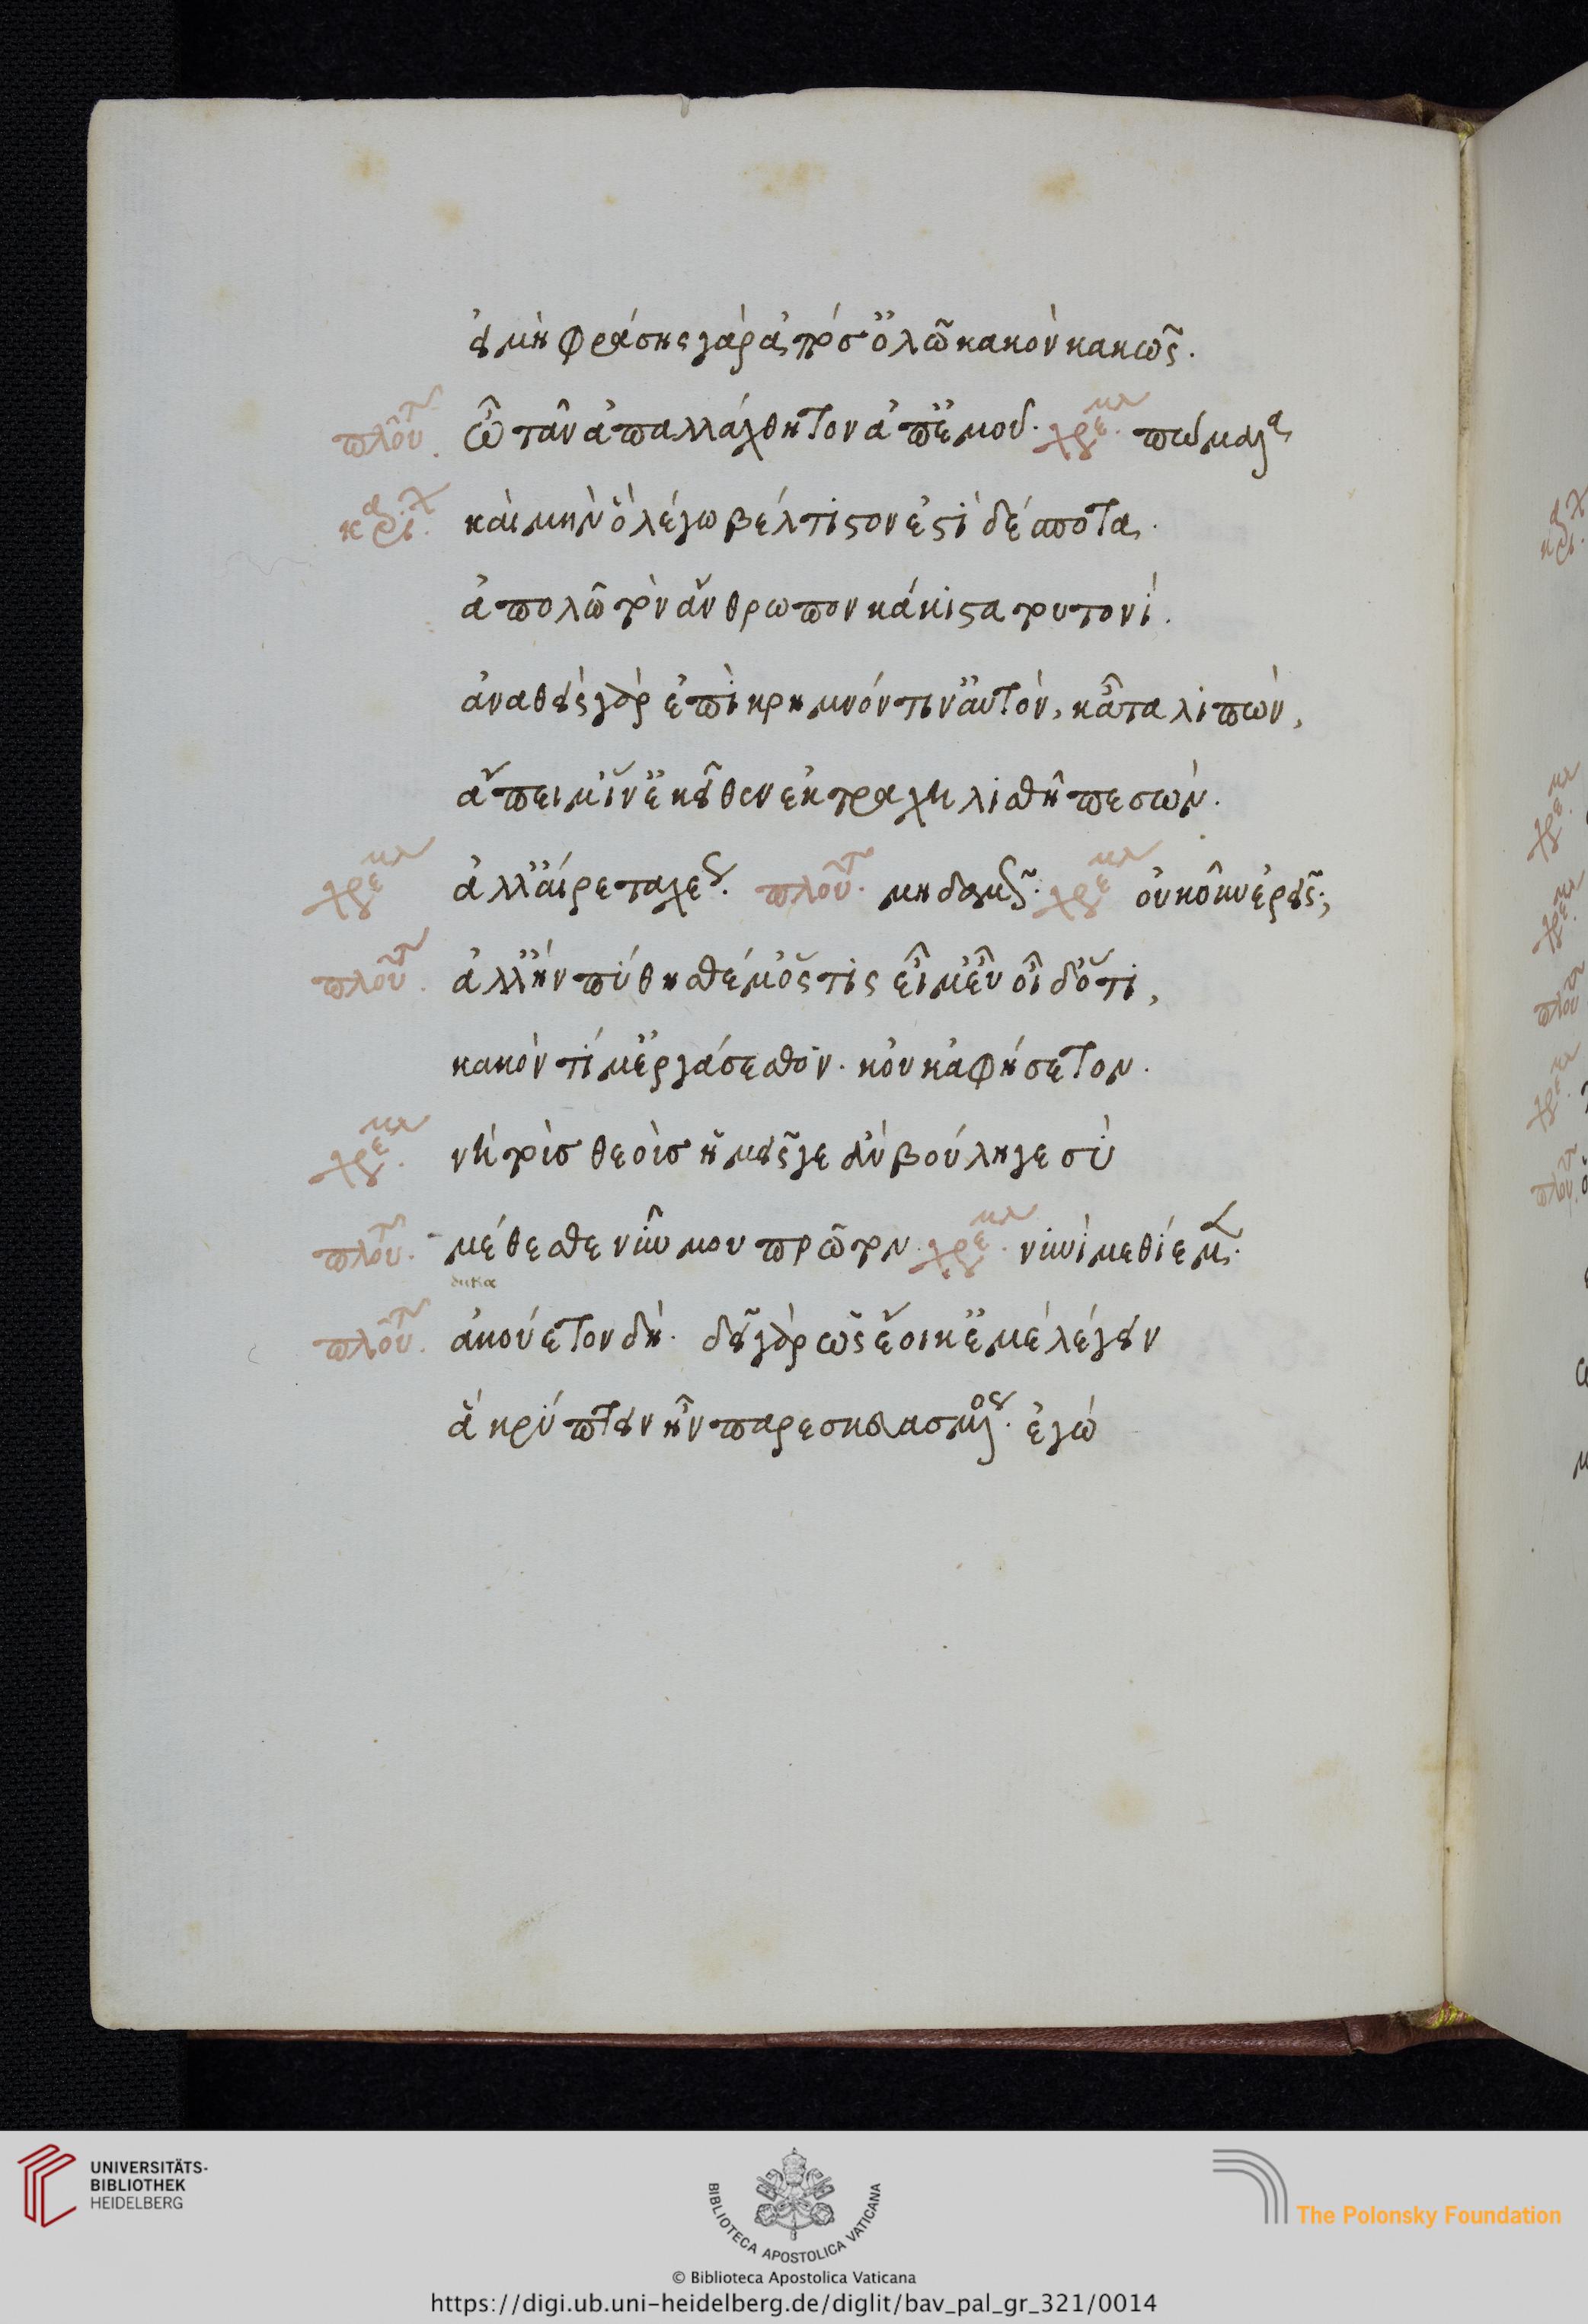 εἰ μὴ φράσῃς γὰρ ἀπό σ' ὀλῶ κακὸν κακῶς.
πλοῦτ. ὦ τᾶν ἀπαλλάχθητον ἀπ' ἐμοῦ. χρεμ. πώμαλα
καρι. καὶ μὴν ὃ λέγω βέλτιστον ἐστὶ δέσποτα.
ἀπολῶ τὸν ἄνθρωπον κάκιστα τουτονί.
ἀναθεὶς γὰρ ἐπὶ κρημνόν τιν' αὐτὸν, κᾆτα λιπὼν,
ἄπειμ' ἵν' ἐκεῖθεν ἐκτραχηλισθῆ πεσών.
χρεμ ἀλλ' αἶρε ταχέως. πλοῦτ. μηδαμῶς. χρεμ οὐκοῦν ἐρεῖς;
πλοῦτ. ἀλλ' ἢν πύθησθέ μ' ὅστις εἶμ' εὖ οἶδ' ὅτι,
κακόν τί μ' ἐργάσεσθον. κοὐκ ἀφήσετον.
χρεμ. νὴ τοὺς θεοὺς ἡμεῖς γε ἐὰν βούλῃ γε σὺ
πλοῦτ. μέθεσθε νῦν μου πρῶτον. χρεμ. νῦνὶ μεθίεμεν.
πλοῦτ. ἀκούετον δή. δεῖ γὰρ ὡς ἔοικέ με λέγειν
ἃ κρύπτειν ἦν παρεσκευασμένος. ἐγὼ
UNIVERSITÄTS-
BIBLIOTHEK
HEIDELBERG
BIBLIOTECA APOSTOLICA VATICANA
The Polonsky Foundation
© Biblioteca Apostolica Vaticana
https://digi.ub.uni-heidelberg.de/diglit/bav_pal_gr_321/0014